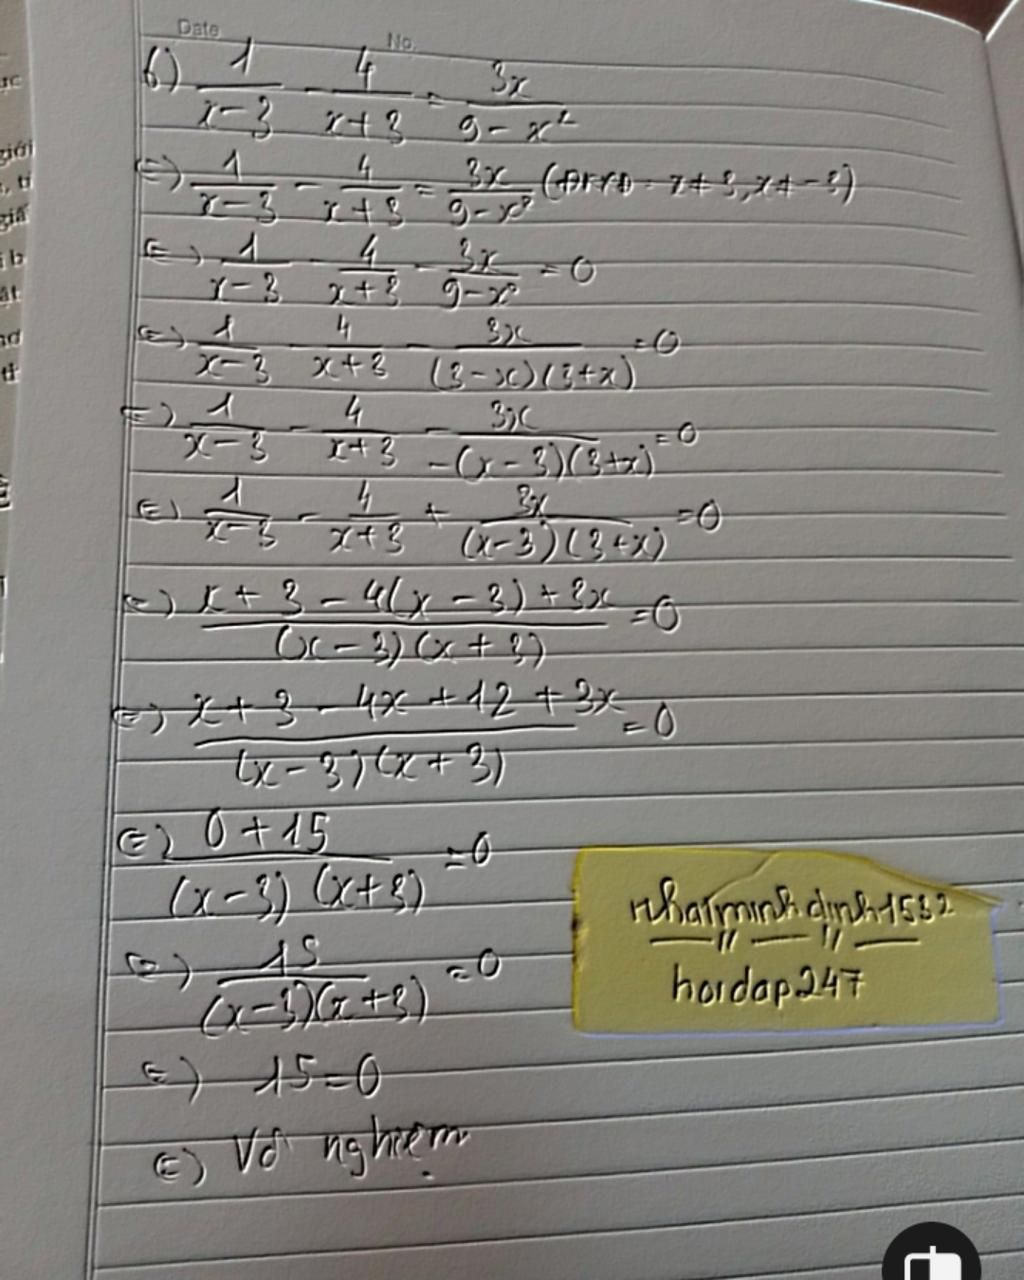 Date No.
b) 1/(x-3) - 4/(x+3) = 3x/(9-x²)
(=) 1/(x-3) - 4/(x+3) = 3x/(9-x²) (ĐKXĐ: x≠3, x≠-3)
(=) 1/(x-3) - 4/(x+3) - 3x/(9-x²) = 0
(=) 1/(x-3) - 4/(x+3) - 3x/((3-x)(3+x)) = 0
(=) 1/(x-3) - 4/(x+3) - 3x/(-(x-3)(3+x)) = 0
(=) 1/(x-3) - 4/(x+3) + 3x/((x-3)(3+x)) = 0
(=) (x+3-4(x-3)+3x)/((x-3)(x+3)) = 0
(=) (x+3-4x+12+3x)/((x-3)(x+3)) = 0
(=) (0+15)/((x-3)(x+3)) = 0
(=) 15/((x-3)(x+3)) = 0
(=) 15=0
(=) Vô nghiệm
nhatminhdinh1532
hoidap247
giới